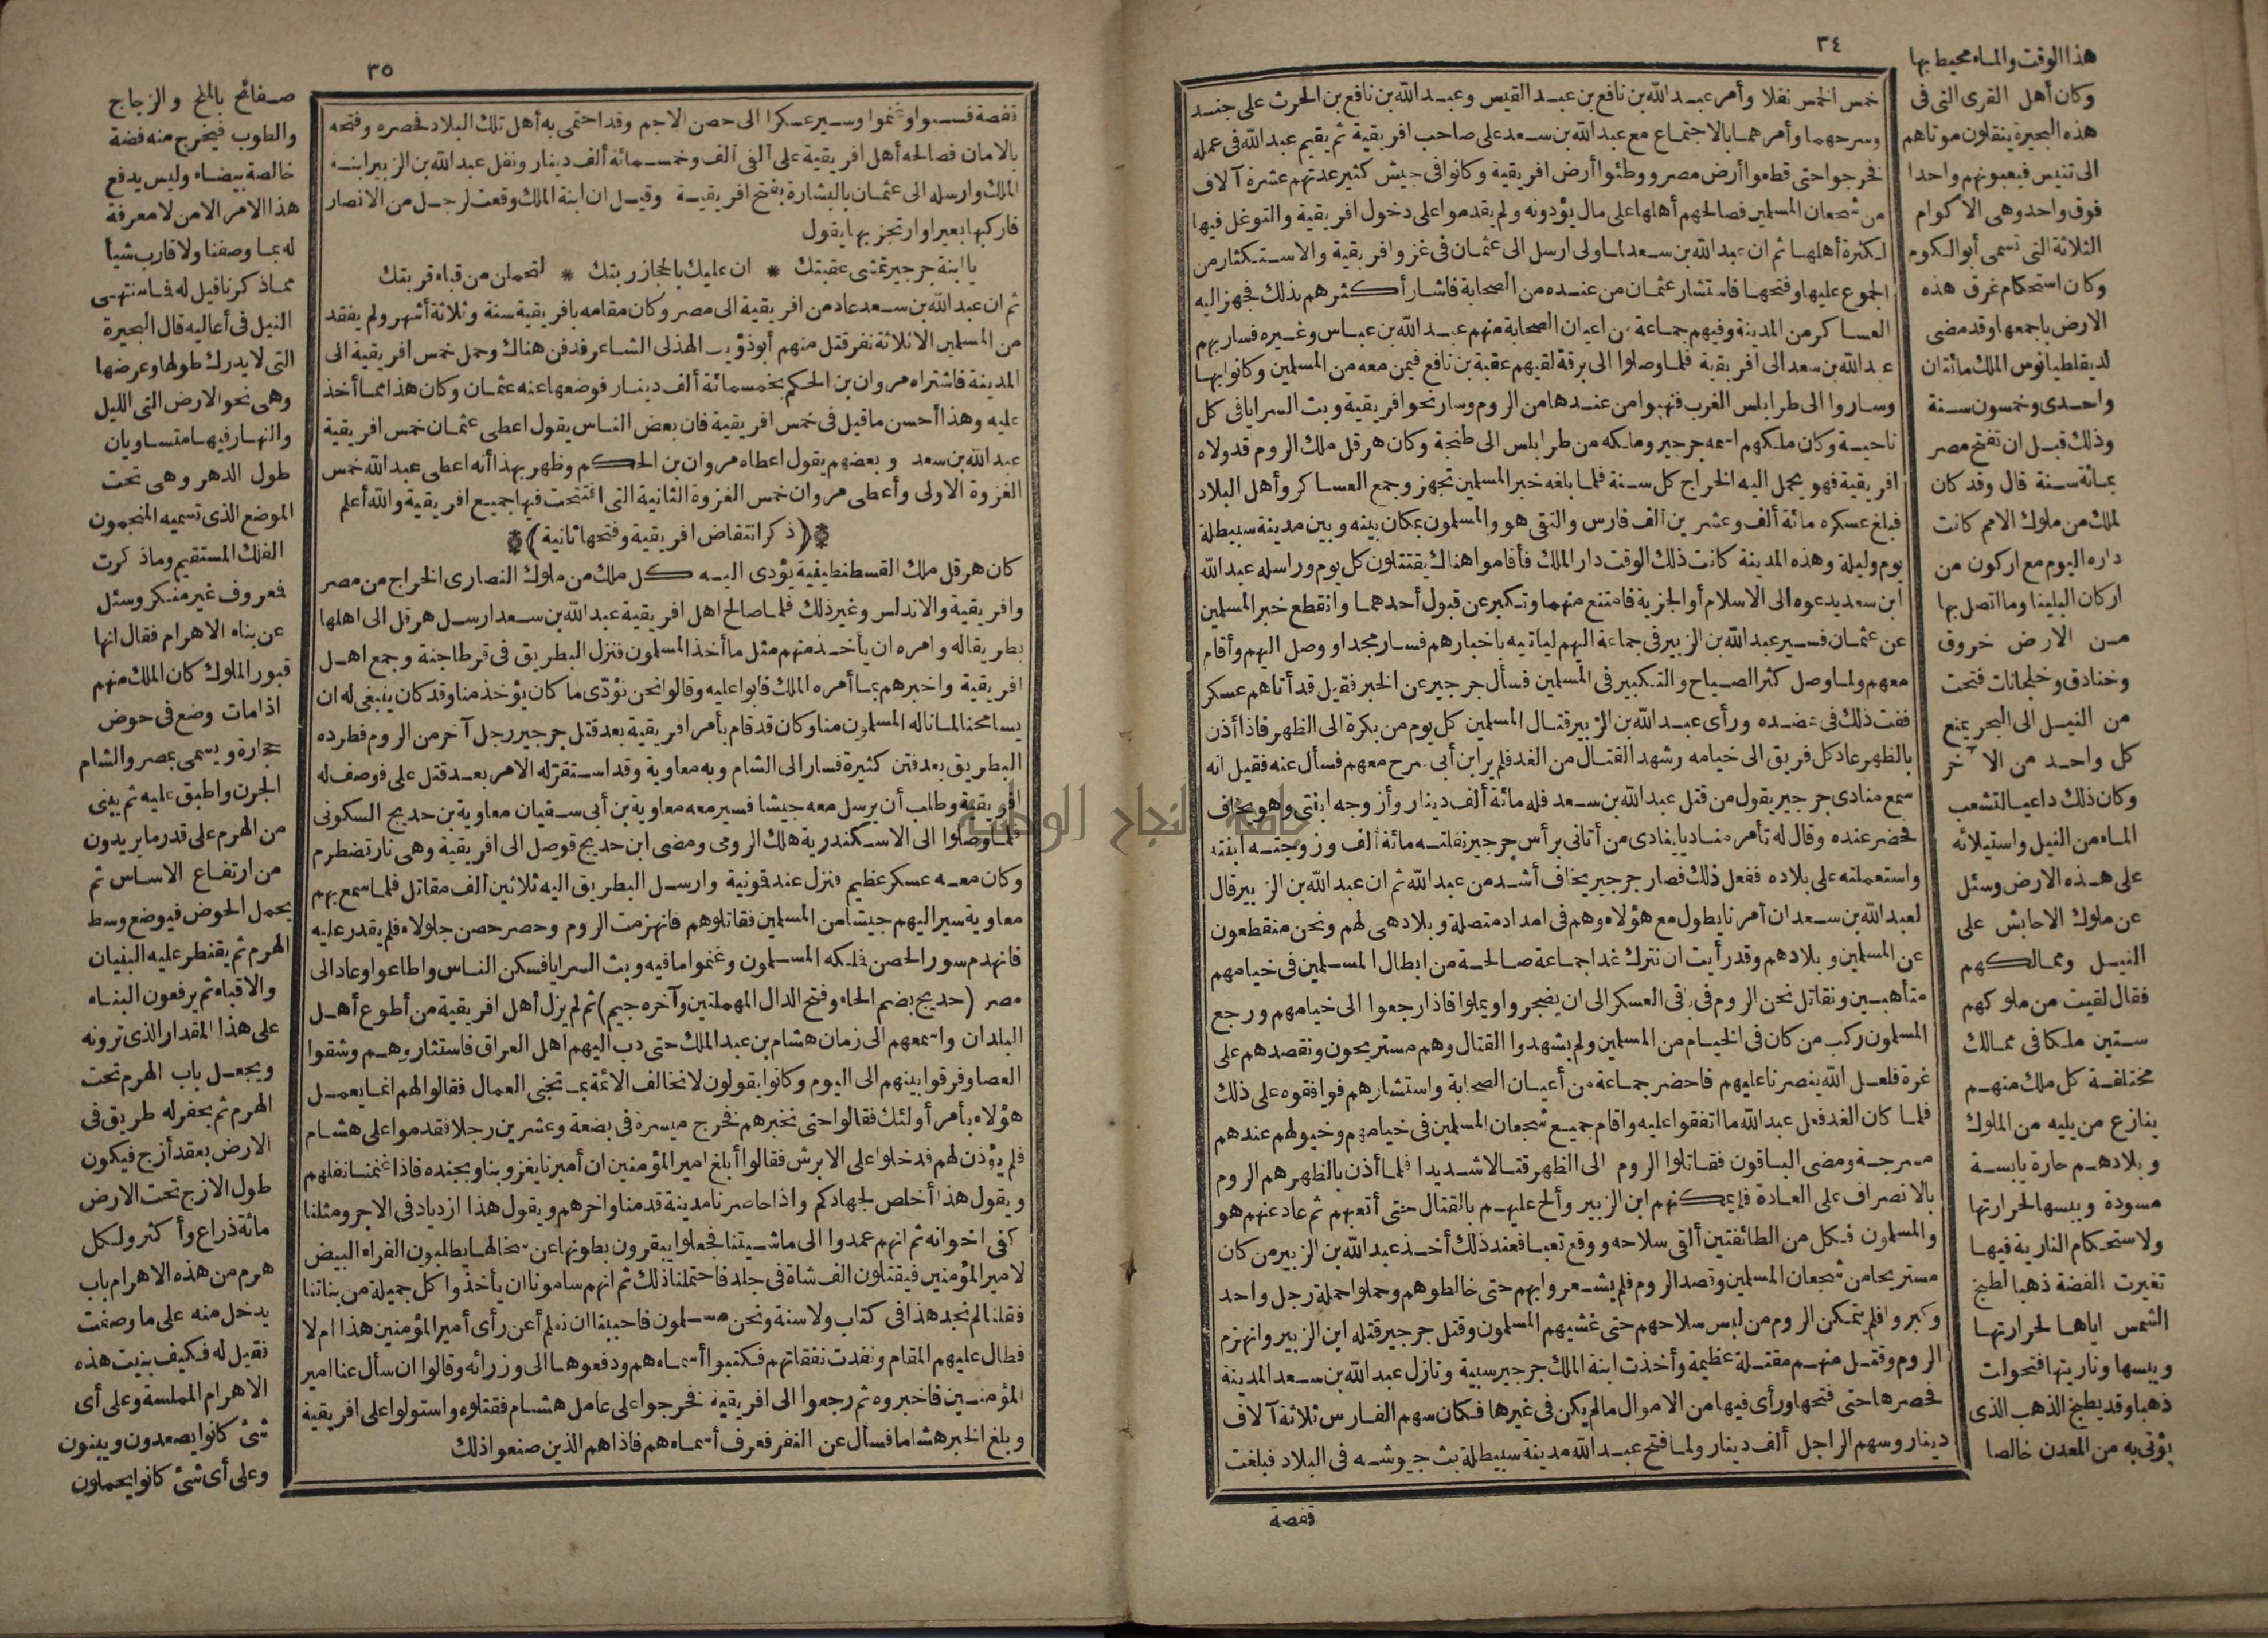 ٣٤
هذا الوقت والماء محيط بها
وكان أهل القرى التى فى
هذه البحيرة ينقلون موتاهم
الى تنيس فيعبونهم واحدا
فوق واحد وهى الا كوام
الثلاثة التى تسمى أبو الكوم
وكان استحكام غرق هذه
الارض باجمعها وقد مضى
لديقلطيانوس الملك مائتان
واحدى وخمسون سنة
وذلك قبل ان تفتح مصر
بمائة سنة قال وقد كان
لملك من ملوك الامم كانت
داره اليوم مع اركون من
اركان البلينا وما اتصل بها
من الارض خروق
وخنادق وخلجانات فتحت
من النيل الى البحر يمنع
كل واحد من الا خر
وكان ذلك داعيا لتشعب
الماء من النيل واستيلائه
على هذه الارض وسئل
عن ملوك الاحابش على
النيل وممالكهم
فقال لقيت من ملوكهم
ستين ملكا فى ممالك
مختلفة كل ملك منهم
ينازع من يليه من الملوك
وبلادهم حارة يابسة
مسودة ويبسها لحرارتها
ولاستحكام النارية فيها
تغيرت الفضة ذهبا لطبخ
الشمس اياها لحرارتها
ويبسها وناريتها فتحولت
ذهبا وقد يطبخ الذهب الذى
يؤتى به من المعدن خالصا
خمس الخمس نفلا وأمر عبد الله بن نافع بن عبد القيس وعبد الله بن نافع بن الحرث على جند
وسرحهما وأمرهما بالاجتماع مع عبد الله بن سعد على صاحب افريقية ثم يقيم عبد الله فى عمله
فخرجوا حتى قطعوا أرض مصر ووطئوا أرض افريقية وكانوا فى جيش كثير عدتهم عشرة آلاف
من شجعان المسلمين فصالحهم أهلها على مال يؤدونه ولم يقدموا على دخول افريقية والتوغل فيها
لكثرة أهلها ثم ان عبد الله بن سعد لما ولى ارسل الى عثمان فى غزو افريقية والاستكثار من
الجموع عليها وفتحها فاستشار عثمان من عنده من الصحابة فاشار أكثرهم بذلك فجهز اليه
العساكر من المدينة وفيهم جماعة من اعيان الصحابة منهم عبد الله بن عباس وغيره فسار بهم
عبد الله بن سعد الى افريقية فلما وصلوا الى برقة لقيهم عقبة بن نافع فيمن معه من المسلمين وكانوا بها
وساروا الى طرابلس الغرب فنهبوا من عندها من الروم وسار نحو افريقية وبث السرايا فى كل
ناحية وكان ملكهم اسمه جرجير وملكه من طرابلس الى طنجة وكان هرقل ملك الروم قد ولاه
افريقية فهو يحمل اليه الخراج كل سنة فلما بلغه خبر المسلمين تجهز وجمع العساكر وأهل البلاد
فبلغ عسكره مائة ألف وعشرين ألف فارس والتقى هو والمسلمون بمكان بينه وبين مدينة سبيطلة
يوم وليلة وهذه المدينة كانت ذلك الوقت دار الملك فأقاموا هناك يقتتلون كل يوم وراسله عبد الله
ابن سعد يدعوه الى الاسلام أو الجزية فامتنع منهما وتكبر عن قبول أحدهما وانقطع خبر المسلمين
عن عثمان فسير عبد الله بن الزبير فى جماعة اليهم لياتيه باخبارهم فسار مجدا ووصل اليهم وأقام
معهم ولما وصل كثر الصياح والتكبير فى المسلمين فسأل جرجير عن الخبر فقيل قد أتاهم عسكر
ففت ذلك فى عضده ورأى عبد الله بن الزبير قتال المسلمين كل يوم من بكرة الى الظهر فاذا أذن
بالظهر عاد كل فريق الى خيامه وشهد القتال من الغد فلم ير ابن أبى سرح معهم فسأل عنه فقيل انه
سمع منادى جرجير يقول من قتل عبد الله بن سعد فله مائة ألف دينار وأزوجه ابنتى وهو يخاف
فحضر عنده وقال له تأمر مناديا ينادى من أتانى برأس جرجير نفلته مائة ألف وزوجته ابنته
واستعملته على بلاده ففعل ذلك فصار جرجير يخاف أشد من عبد الله ثم ان عبد الله بن الزبير قال
لعبد الله بن سعد ان أمرنا يطول مع هؤلاء وهم فى امداد متصلة وبلاد هى لهم ونحن منقطعون
عن المسلمين وبلادهم وقد رأيت ان نترك غدا جماعة صالحة من ابطال المسلمين فى خيامهم
متأهبين ونقاتل نحن الروم فى باقى العسكر الى ان يضجروا ويملوا فاذا رجعوا الى خيامهم ورجع
المسلمون ركب من كان فى الخيام من المسلمين ولم يشهدوا القتال وهم مستريحون ونقصدهم على
غرة فلعل الله ينصرنا عليهم فاحضر جماعة من أعيان الصحابة واستشارهم فوافقوه على ذلك
فلما كان الغد فعل عبد الله ما اتفقوا عليه واقام جميع شجعان المسلمين فى خيامهم وخيولهم عندهم
مسرجة ومضى الباقون فقاتلوا الروم الى الظهر قتالا شديدا فلما أذن بالظهر هم الروم
بالانصراف على العادة فلم يمكنهم ابن الزبير وألح عليهم بالقتال حتى أتعبهم ثم عاد عنهم هو
والمسلمون فكل من الطائفتين ألقى سلاحه ووقع تعبا فعند ذلك أخذ عبد الله بن الزبير من كان
مستريحا من شجعان المسلمين وقصد الروم فلم يشعروا بهم حتى خالطوهم وحملوا حملة رجل واحد
وكبروا فلم يتمكن الروم من لبس سلاحهم حتى غشيهم المسلمون وقتل جرجير قتله ابن الزبير وانهزم
الروم وقتل منهم مقتلة عظيمة وأخذت ابنة الملك جرجير سبية ونازل عبد الله بن سعد المدينة
فحصرها حتى فتحها ورأى فيها من الاموال ما لم يكن فى غيرها فكان سهم الفارس ثلاثة آلاف
دينار وسهم الراجل ألف دينار ولما فتح عبد الله مدينة سبيطلة بث جيوشه فى البلاد فبلغت
قفصة
٣٥
قفصة فسبوا وغنموا وسير عسكرا الى حصن الاجم وقد احتمى به أهل تلك البلاد فحصره وفتحه
بالامان فصالحه أهل افريقية على ألفى ألف وخمسمائة ألف دينار ونفل عبد الله بن الزبير ابنة
الملك وارسله الى عثمان بالبشارة بفتح افريقية وقيل ان ابنة الملك وقعت لرجل من الانصار
فاركبها بعيرا وارتجز بها يقول
يا ابنة جرجير تمشى عقبتك * ان عليك بالحجاز ربتك * لتحملن من قباء قربتك
ثم ان عبد الله بن سعد عاد من افريقية الى مصر وكان مقامه بافريقية سنة وثلاثة أشهر ولم يفقد
من المسلمين الا ثلاثة نفر قتل منهم أبو ذؤيب الهذلى الشاعر فدفن هناك وحمل خمس افريقية الى
المدينة فاشتراه مروان بن الحكم بخمسمائة ألف دينار فوضعها عنه عثمان وكان هذا مما أخذ
عليه وهذا أحسن ما قيل فى خمس افريقية فان بعض الناس يقول اعطى عثمان خمس افريقية
عبد الله بن سعد وبعضهم يقول اعطاه مروان بن الحكم وظهر بهذا أنه اعطى عبد الله خمس
الغزوة الاولى وأعطى مروان خمس الغزوة الثانية التى افتتحت فيها جميع افريقية والله أعلم
(ذكر انتقاض افريقية وفتحها ثانية)
كان هرقل ملك القسطنطينية يؤدى اليه كل ملك من ملوك النصارى الخراج من مصر
وافريقية والاندلس وغير ذلك فلما صالح اهل افريقية عبد الله بن سعد ارسل هرقل الى اهلها
بطريقا له وامره ان يأخذ منهم مثل ما أخذ المسلمون فنزل البطريق فى قرطاجنة وجمع اهل
افريقية واخبرهم بما أمره الملك فابوا عليه وقالوا نحن نؤدى ما كان يؤخذ منا وقد كان ينبغى له ان
يسامحنا لما ناله المسلمون منا وكان قد قام بأمر افريقية بعد قتل جرجير رجل آخر من الروم فطرده
البطريق بعد فتن كثيرة فسار الى الشام وبه معاوية وقد استقر له الامر بعد قتل على فوصف له
افريقية وطلب أن يرسل معه جيشا فسير معه معاوية بن أبى سفيان معاوية بن حديج السكونى
فلما وصلوا الى الاسكندرية هلك الرومى ومضى ابن حديج فوصل الى افريقية وهى نار تضطرم
وكان معه عسكر عظيم فنزل عند قونية وارسل البطريق اليه ثلاثين ألف مقاتل فلما سمع بهم
معاوية سير اليهم جيشا من المسلمين فقاتلوهم فانهزمت الروم وحصر حصن جلولاء فلم يقدر عليه
فانهدم سور الحصن فملكه المسلمون وغنموا ما فيه وبث السرايا فسكن الناس واطاعوا وعاد الى
مصر (حديج بضم الحاء وفتح الدال المهملتين وآخره جيم) ثم لم يزل أهل افريقية من أطوع أهل
البلدان واسمعهم الى زمان هشام بن عبد الملك حتى دب اليهم اهل العراق فاستثاروهم وشقوا
العصا وفرقوا بينهم الى اليوم وكانوا يقولون لا نخالف الائمة بما تجنى العمال فقالوا لهم انما يعمل
هؤلاء بأمر أولئك فقالوا حتى نخبرهم فخرج ميسرة فى بضعة وعشرين رجلا فقدموا على هشام
فلم يؤذن لهم فدخلوا على الابرش فقالوا أبلغ امير المؤمنين ان أميرنا يغزو بنا وبجنده فاذا غنمنا نفلهم
ويقول هذا أخلص لجهادكم واذا حاصرنا مدينة قدمنا واخرهم ويقول هذا ازدياد فى الاجر ومثلنا
كفى اخوانه ثم انهم عمدوا الى ماشيتنا فجعلوا يبقرون بطونها عن سخالها يطلبون الفراء البيض
لامير المؤمنين فيقتلون الف شاة فى جلد فاحتملنا ذلك ثم انهم سامونا ان يأخذوا كل جميلة من بناتنا
فقلنا لم نجد هذا فى كتاب ولا سنة ونحن مسلمون فاحببنا ان نعلم أعن رأى أمير المؤمنين هذا ام لا
فطال عليهم المقام ونفدت نفقاتهم فكتبوا أسماءهم ودفعوها الى وزرائه وقالوا ان سأل عنا امير
المؤمنين فاخبروه ثم رجعوا الى افريقية فخرجوا على عامل هشام فقتلوه واستولوا على افريقية
وبلغ الخبر هشاما فسأل عن النفر فعرف أسماءهم فاذا هم الذين صنعوا ذلك
صفائح بالملح والزجاج
والطوب فيخرج منه فضة
خالصة بيضاء وليس يدفع
هذا الامر الا من لا معرفة
له بما وصفنا ولا قارب شيأ
مما ذكرنا قيل له فما منتهى
النيل فى أعاليه قال البحيرة
التى لا يدرك طولها وعرضها
وهى نحو الارض التى الليل
والنهار فيها متساويان
طول الدهر وهى تحت
الموضع الذى تسميه المنجمون
الفلك المستقيم وما ذكرت
فمعروف غير منكر وسئل
عن بناء الاهرام فقال انها
قبور الملوك كان الملك منهم
اذا مات وضع فى حوض
حجارة ويسمى بمصر والشام
الجرن واطبق عليه ثم يبنى
من الهرم على قدر ما يريدون
من ارتفاع الاساس ثم
يحمل الحوض فيوضع وسط
الهرم ثم يقنطر عليه البنيان
والاقباء ثم يرفعون البناء
على هذا المقدار الذى ترونه
ويجعل باب الهرم تحت
الهرم ثم يحفر له طريق فى
الارض بعقد أزج فيكون
طول الازج تحت الارض
مائة ذراع وأكثر ولكل
هرم من هذه الاهرام باب
يدخل منه على ما وصفت
فقيل له فكيف بنيت هذه
الاهرام المملسة وعلى أى
شئ كانوا يصعدون ويبنون
وعلى أى شئ كانوا يحملون
جامعة النجاح الوطنية